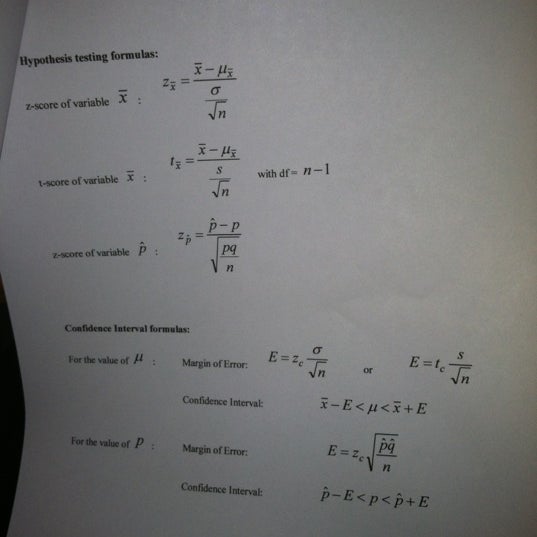 Hypothesis testing formulas:
z-score of variable x̄ : z_x̄ = (x̄ − μ_x̄) / (σ / √n)
t-score of variable x̄ : t_x̄ = (x̄ − μ_x̄) / (s / √n) with df = n−1
z-score of variable p̂ : z_p̂ = (p̂ − p) / √(pq / n)
Confidence Interval formulas:
For the value of μ : Margin of Error: E = z_c σ / √n or E = t_c s / √n
Confidence Interval: x̄ − E < μ < x̄ + E
For the value of p : Margin of Error: E = z_c √(p̂q̂ / n)
Confidence Interval: p̂ − E < p < p̂ + E